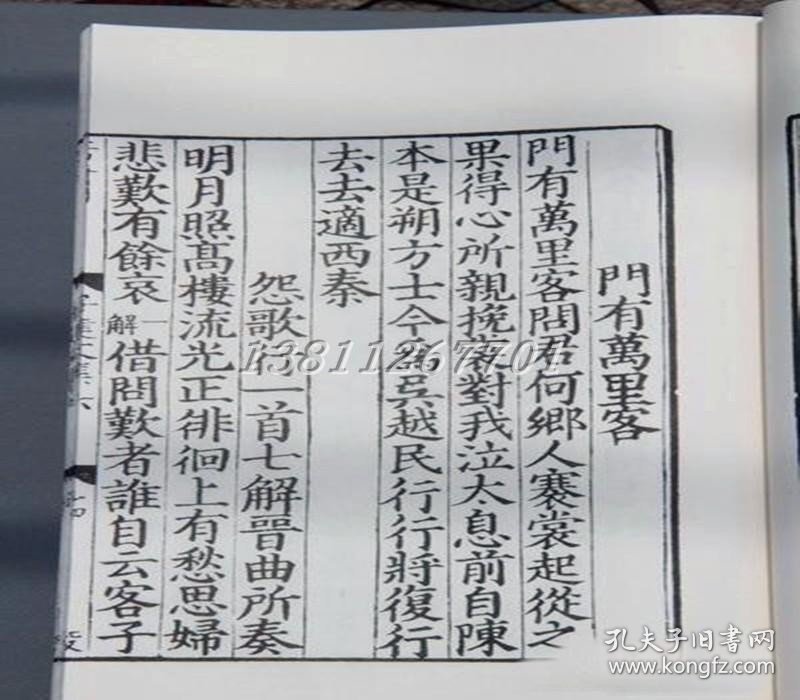 門有萬里客
門有萬里客問君何鄉人褰裳起從之
果得心所親挽裳對我泣太息前自陳
本是朔方士今爲吳越民行行將復行
去去適西秦
怨歌行一首七解晉曲所奏
明月照髙樓流光正徘徊上有愁思婦
悲歎有餘哀一解借問歎者誰自云客子
十四
13811267701
孔夫子旧书网
www.kongfz.com